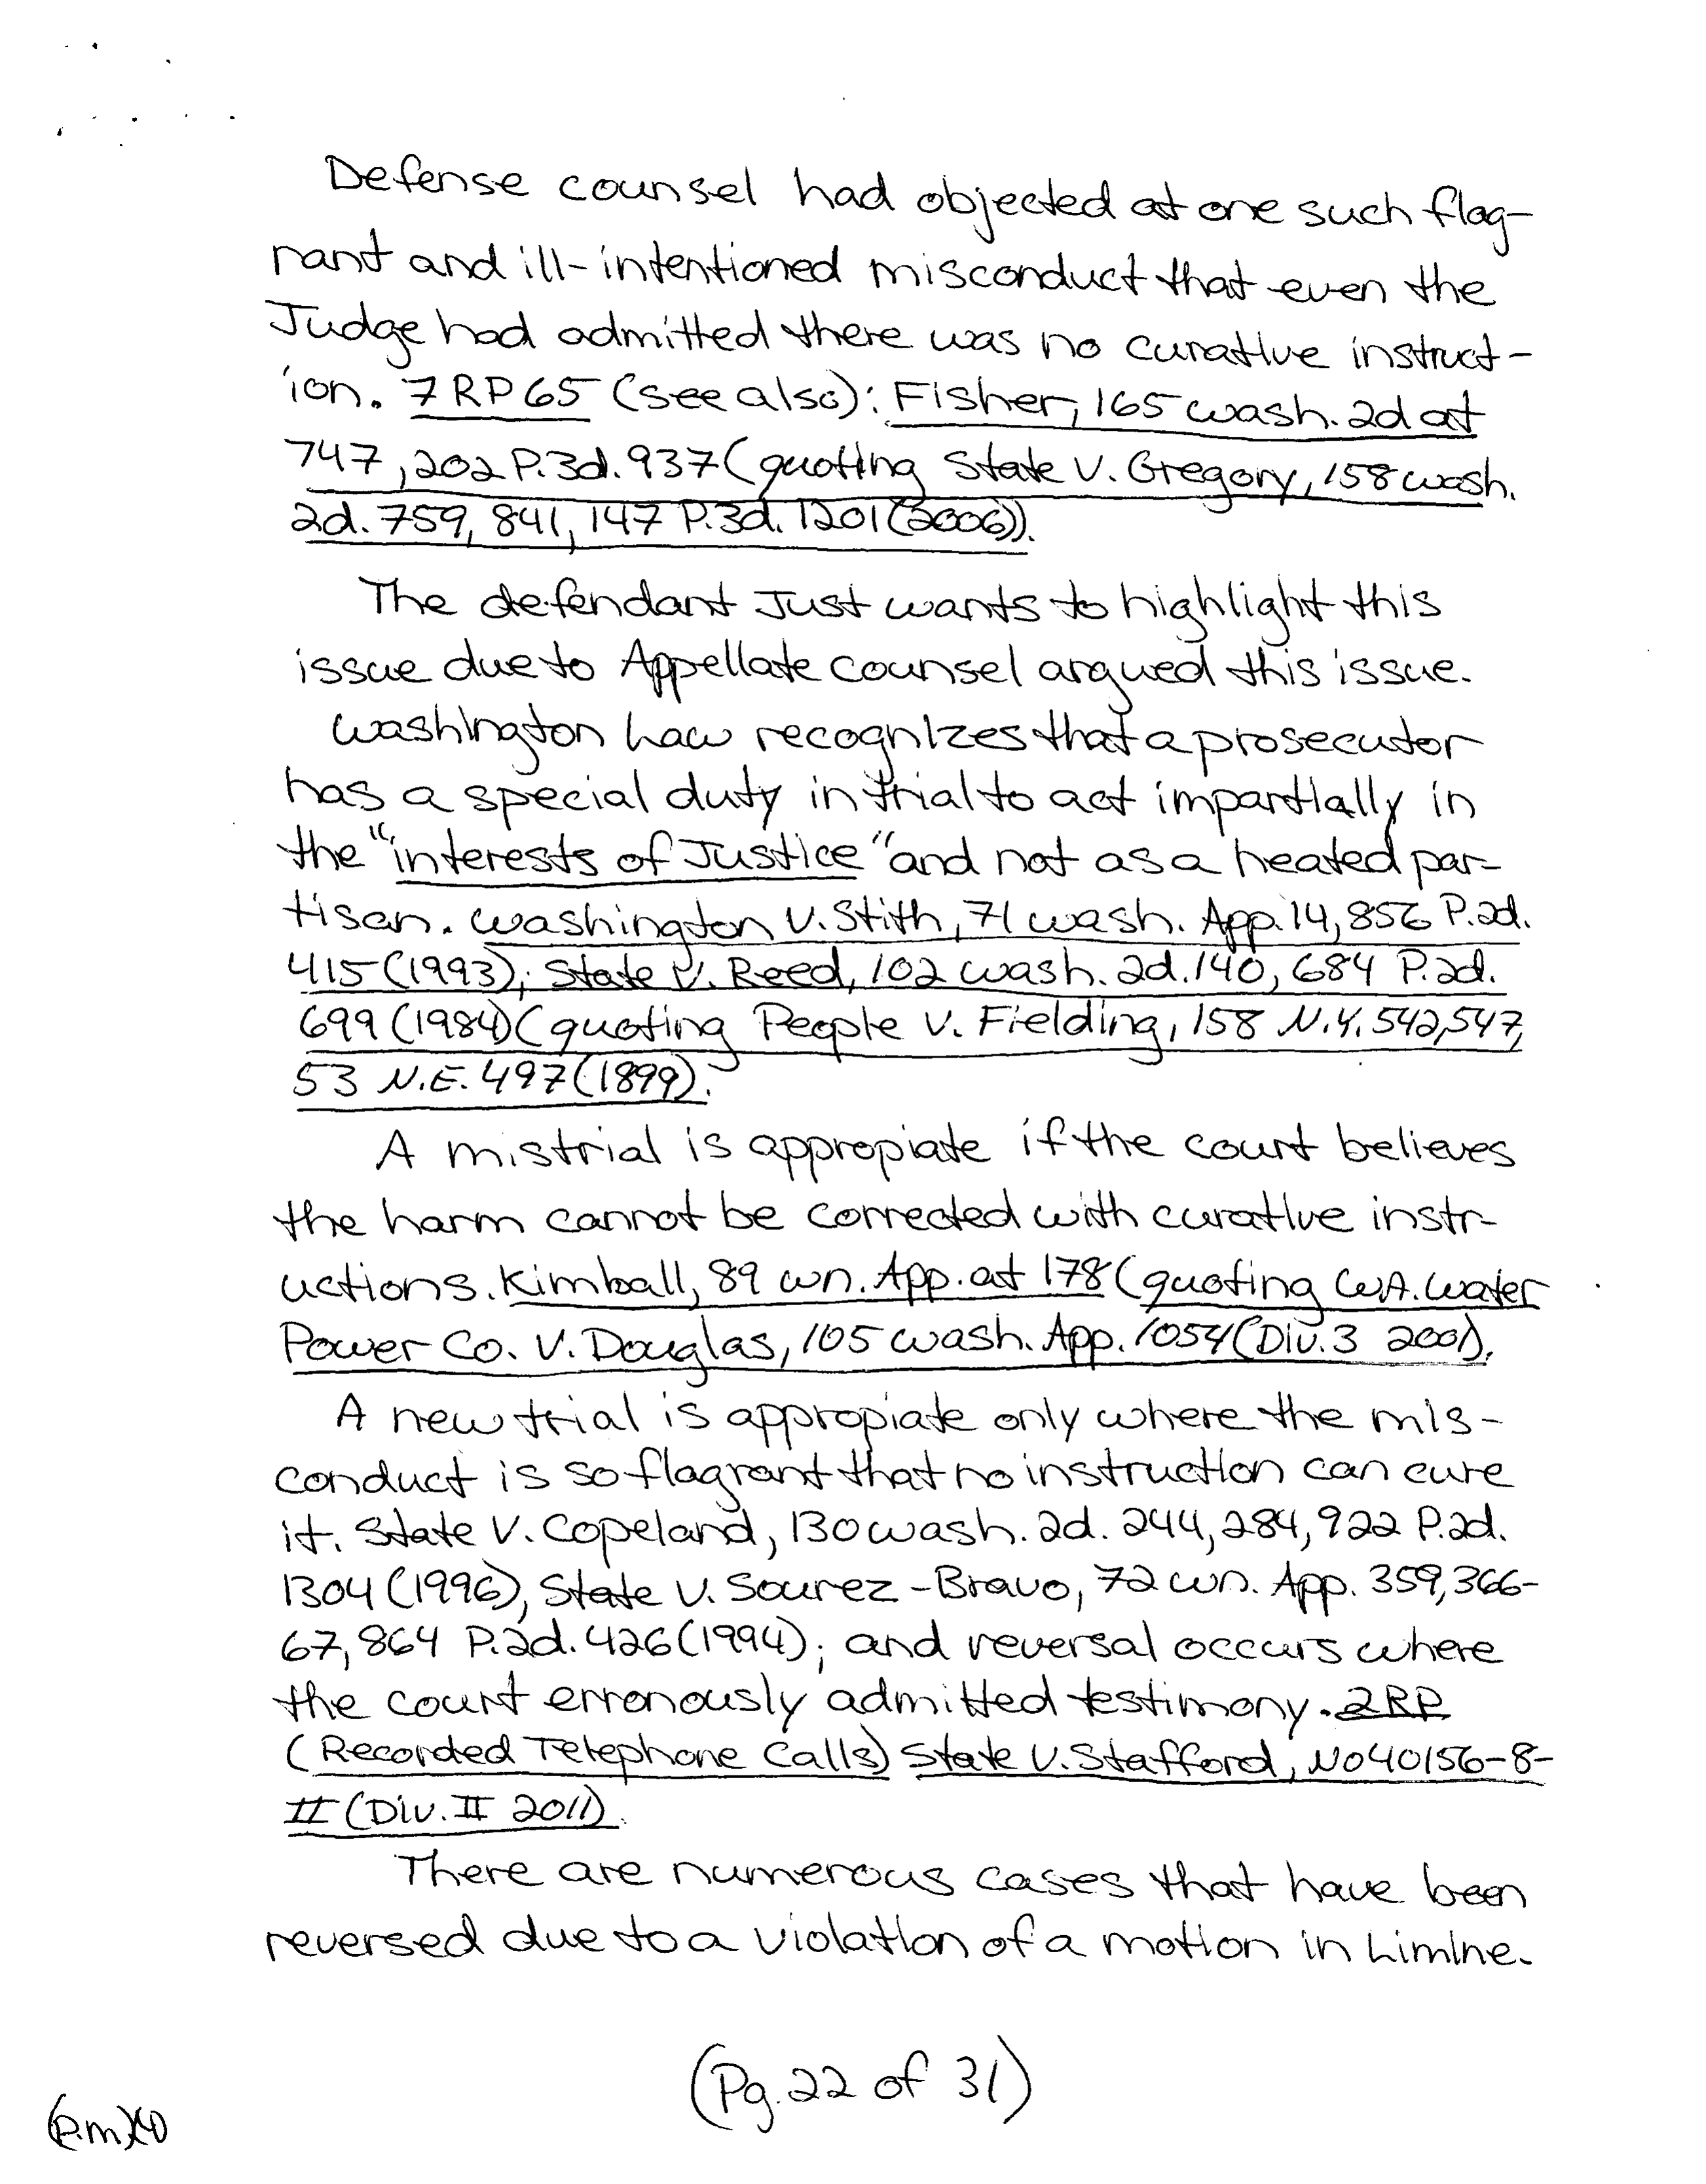 Defense counsel had objected at one such flag-
rant and ill-intentioned misconduct that even the
Judge had admitted there was no curative instruct-
ion. 7 RP 65 (see also): Fisher, 165 wash. 2d at
747, 202 P.3d. 937 (quoting State V. Gregory, 158 wash.
2d. 759, 841, 147 P.3d. 1201 (2006)).
The defendant Just wants to highlight this
issue due to Appellate counsel argued this issue.
Washington Law recognizes that a prosecutor
has a special duty in trial to act impartially in
the "interests of Justice" and not as a heated par-
tisan. Washington V. Stith, 71 wash. App. 14, 856 P.2d.
415 (1993); State V. Reed, 102 wash. 2d. 140, 684 P.2d.
699 (1984) (quoting People V. Fielding, 158 N.Y. 542, 547,
53 N.E. 497 (1899).
A mistrial is appropiate if the court believes
the harm cannot be corrected with curative instr-
uctions. Kimball, 89 wn. App. at 178 (quoting WA. Water
Power Co. V. Douglas, 105 wash. App. 1054 (Div. 3 2001).
A new trial is appropiate only where the mis-
conduct is so flagrant that no instruction can cure
it. State V. Copeland, 130 wash. 2d. 244, 284, 922 P.2d.
1304 (1996), State V. Sourez-Bravo, 72 wn. App. 359, 366-
67, 864 P.2d. 426 (1994); and reversal occurs where
the court erronously admitted testimony. 2RP
(Recorded Telephone Calls) State V. Stafford, No 40156-8-
II (Div. II 2011).
There are numerous cases that have been
reversed due to a violation of a motion in Limine.
(Pg. 22 of 31)